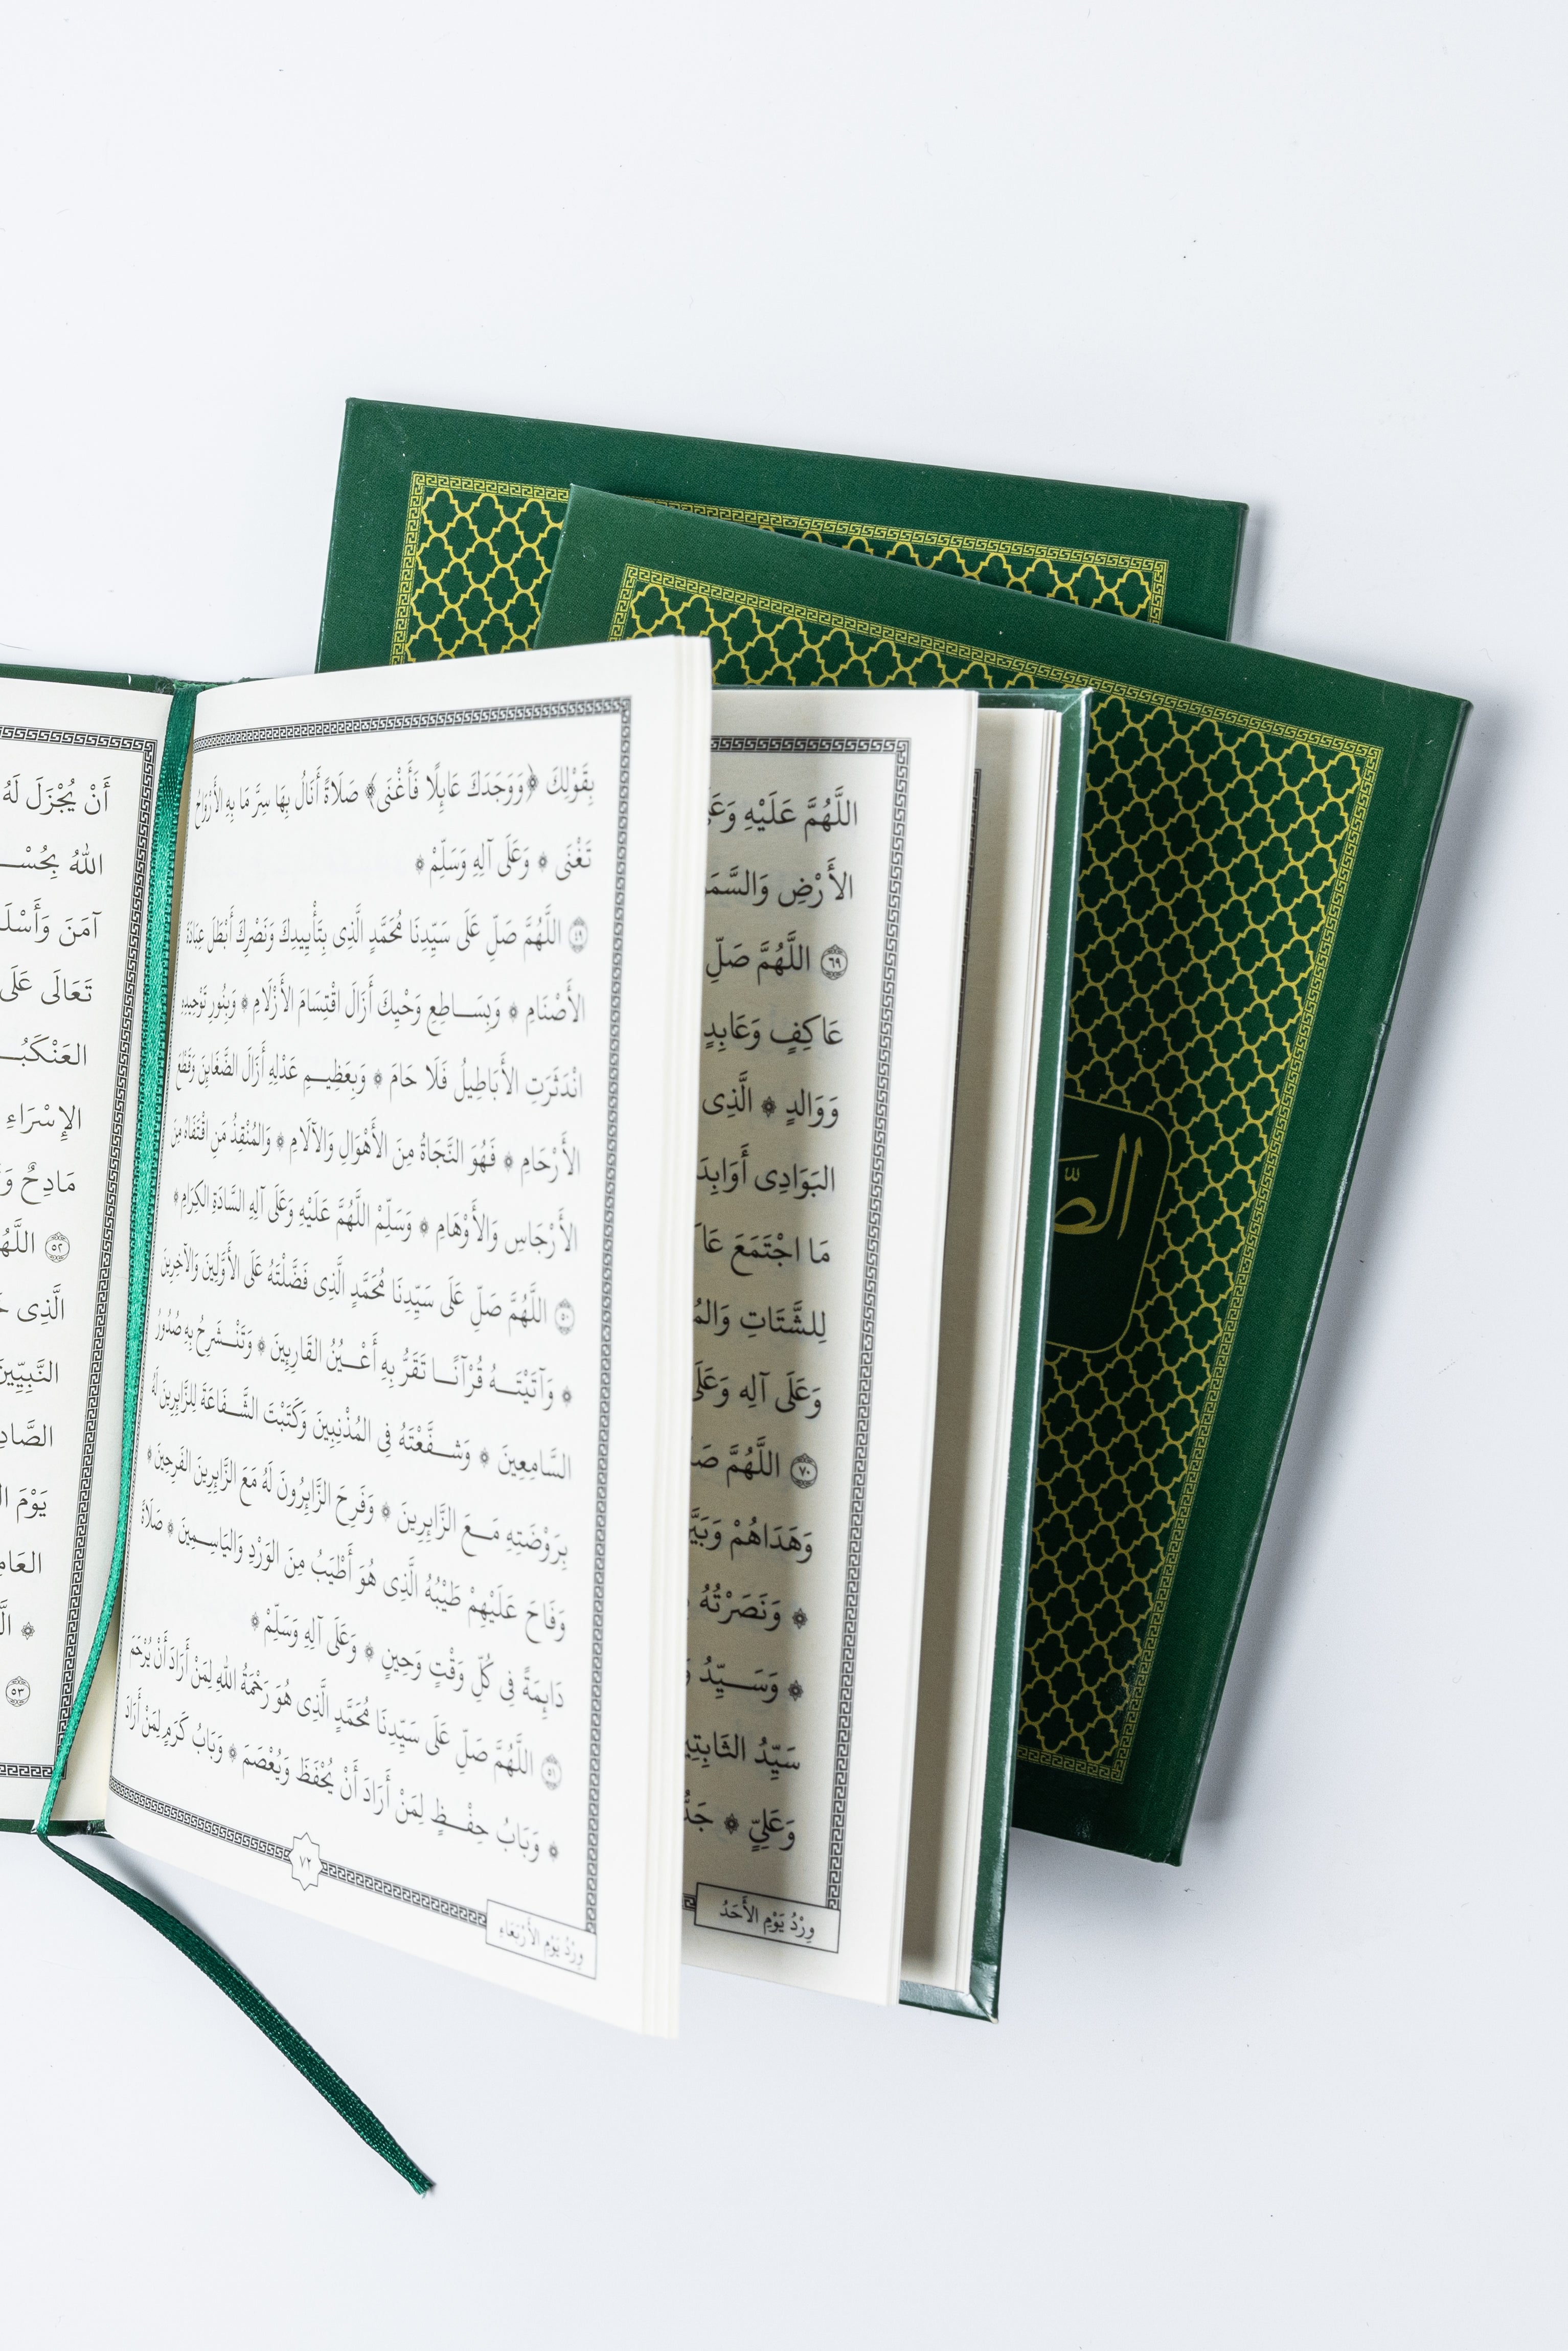 بِقَوْلِكَ ﴿وَوَجَدَكَ عَائِلًا فَأَغْنَى﴾ صَلَاةً أَنَالُ بِهَا سِرَّ مَا بِهِ الأَرْوَاحُ
تَغْنَى ۞ وَعَلَى آلِهِ وَسَلِّمْ ۞
٤٩ اللَّهُمَّ صَلِّ عَلَى سَيِّدِنَا مُحَمَّدٍ الَّذِى بِتَأْيِيدِكَ وَنَصْرِكَ أَبْطَلَ عِبَادَةَ
الأَصْنَامِ ۞ وَبِسَاطِعِ وَحْيِكَ أَزَالَ اقْتِسَامَ الأَزْلَامِ ۞ وَبِنُورِ تَوْحِيدِهِ
انْدَثَرَتِ الأَبَاطِيلُ فَلَا حَامَ ۞ وَبِعَظِيمِ عَدْلِهِ أَزَالَ الضَّغَائِنَ وَقَطْعَ
الأَرْحَامِ ۞ فَهُوَ النَّجَاةُ مِنَ الأَهْوَالِ وَالآلَامِ ۞ وَالمُنْقِذُ مَنِ اقْتَفَاهُ مِنَ
الأَرْجَاسِ وَالأَوْهَامِ ۞ وَسَلِّمْ اللَّهُمَّ عَلَيْهِ وَعَلَى آلِهِ السَّادَةِ الكِرَامِ ۞
٥٠ اللَّهُمَّ صَلِّ عَلَى سَيِّدِنَا مُحَمَّدٍ الَّذِى فَضَّلْتَهُ عَلَى الأَوَّلِينَ وَالآخِرِينَ
۞ وَآتَيْتَهُ قُرْآنًا تَقَرُّ بِهِ أَعْيُنُ القَارِئِينَ ۞ وَتَنْشَرِحُ بِهِ صُدُورُ
السَّامِعِينَ ۞ وَشَفَّعْتَهُ فِى المُذْنِبِينَ وَكَتَبْتَ الشَّفَاعَةَ لِلزَّائِرِينَ لَهُ
بِرَوْضَتِهِ مَعَ الزَّائِرِينَ ۞ وَفَرِحَ الزَّائِرُونَ لَهُ مَعَ الزَّائِرِينَ الفَرِحِينَ ۞
وَفَاحَ عَلَيْهِمْ طَيْبُهُ الَّذِى هُوَ أَطْيَبُ مِنَ الوَرْدِ وَاليَاسِمِينَ ۞ صَلَاةً
دَائِمَةً فِى كُلِّ وَقْتٍ وَحِينٍ ۞ وَعَلَى آلِهِ وَسَلِّمْ ۞
٥١ اللَّهُمَّ صَلِّ عَلَى سَيِّدِنَا مُحَمَّدٍ الَّذِى هُوَ رَحْمَةُ اللهِ لِمَنْ أَرَادَ أَنْ يُرْحَمَ
۞ وَبَابُ حِفْظٍ لِمَنْ أَرَادَ أَنْ يُحْفَظَ وَيُعْصَمَ ۞ وَبَابُ كَرَمٍ لِمَنْ أَرَادَ
٧٢
وِرْدُ يَوْمِ الأَرْبَعَاءِ
أَنْ يُجْزَلَ لَهُ
اللهُ
آمَنَ
تَعَالَى عَلَى
الإِسْرَاءِ
مَادِحٌ
٥٢
الَّذِى
النَّبِيِّينَ
يَوْمَ
٥٣
اللَّهُمَّ عَلَيْهِ
الأَرْضِ
٦٩ اللَّهُمَّ صَلِّ
عَاكِفٍ وَعَابِدٍ
وَوَالِدٍ ۞ الَّذِى
البَوَادِى
مَا اجْتَمَعَ
لِلشَّتَاتِ
وَعَلَى آلِهِ
٧٠ اللَّهُمَّ
وَهَدَاهُمْ
۞ وَنَصَرْتُهُ
۞ وَسَيِّدُ
سَيِّدُ
وَعَلِيٍّ ۞
وِرْدُ يَوْمِ الأَحَدُ